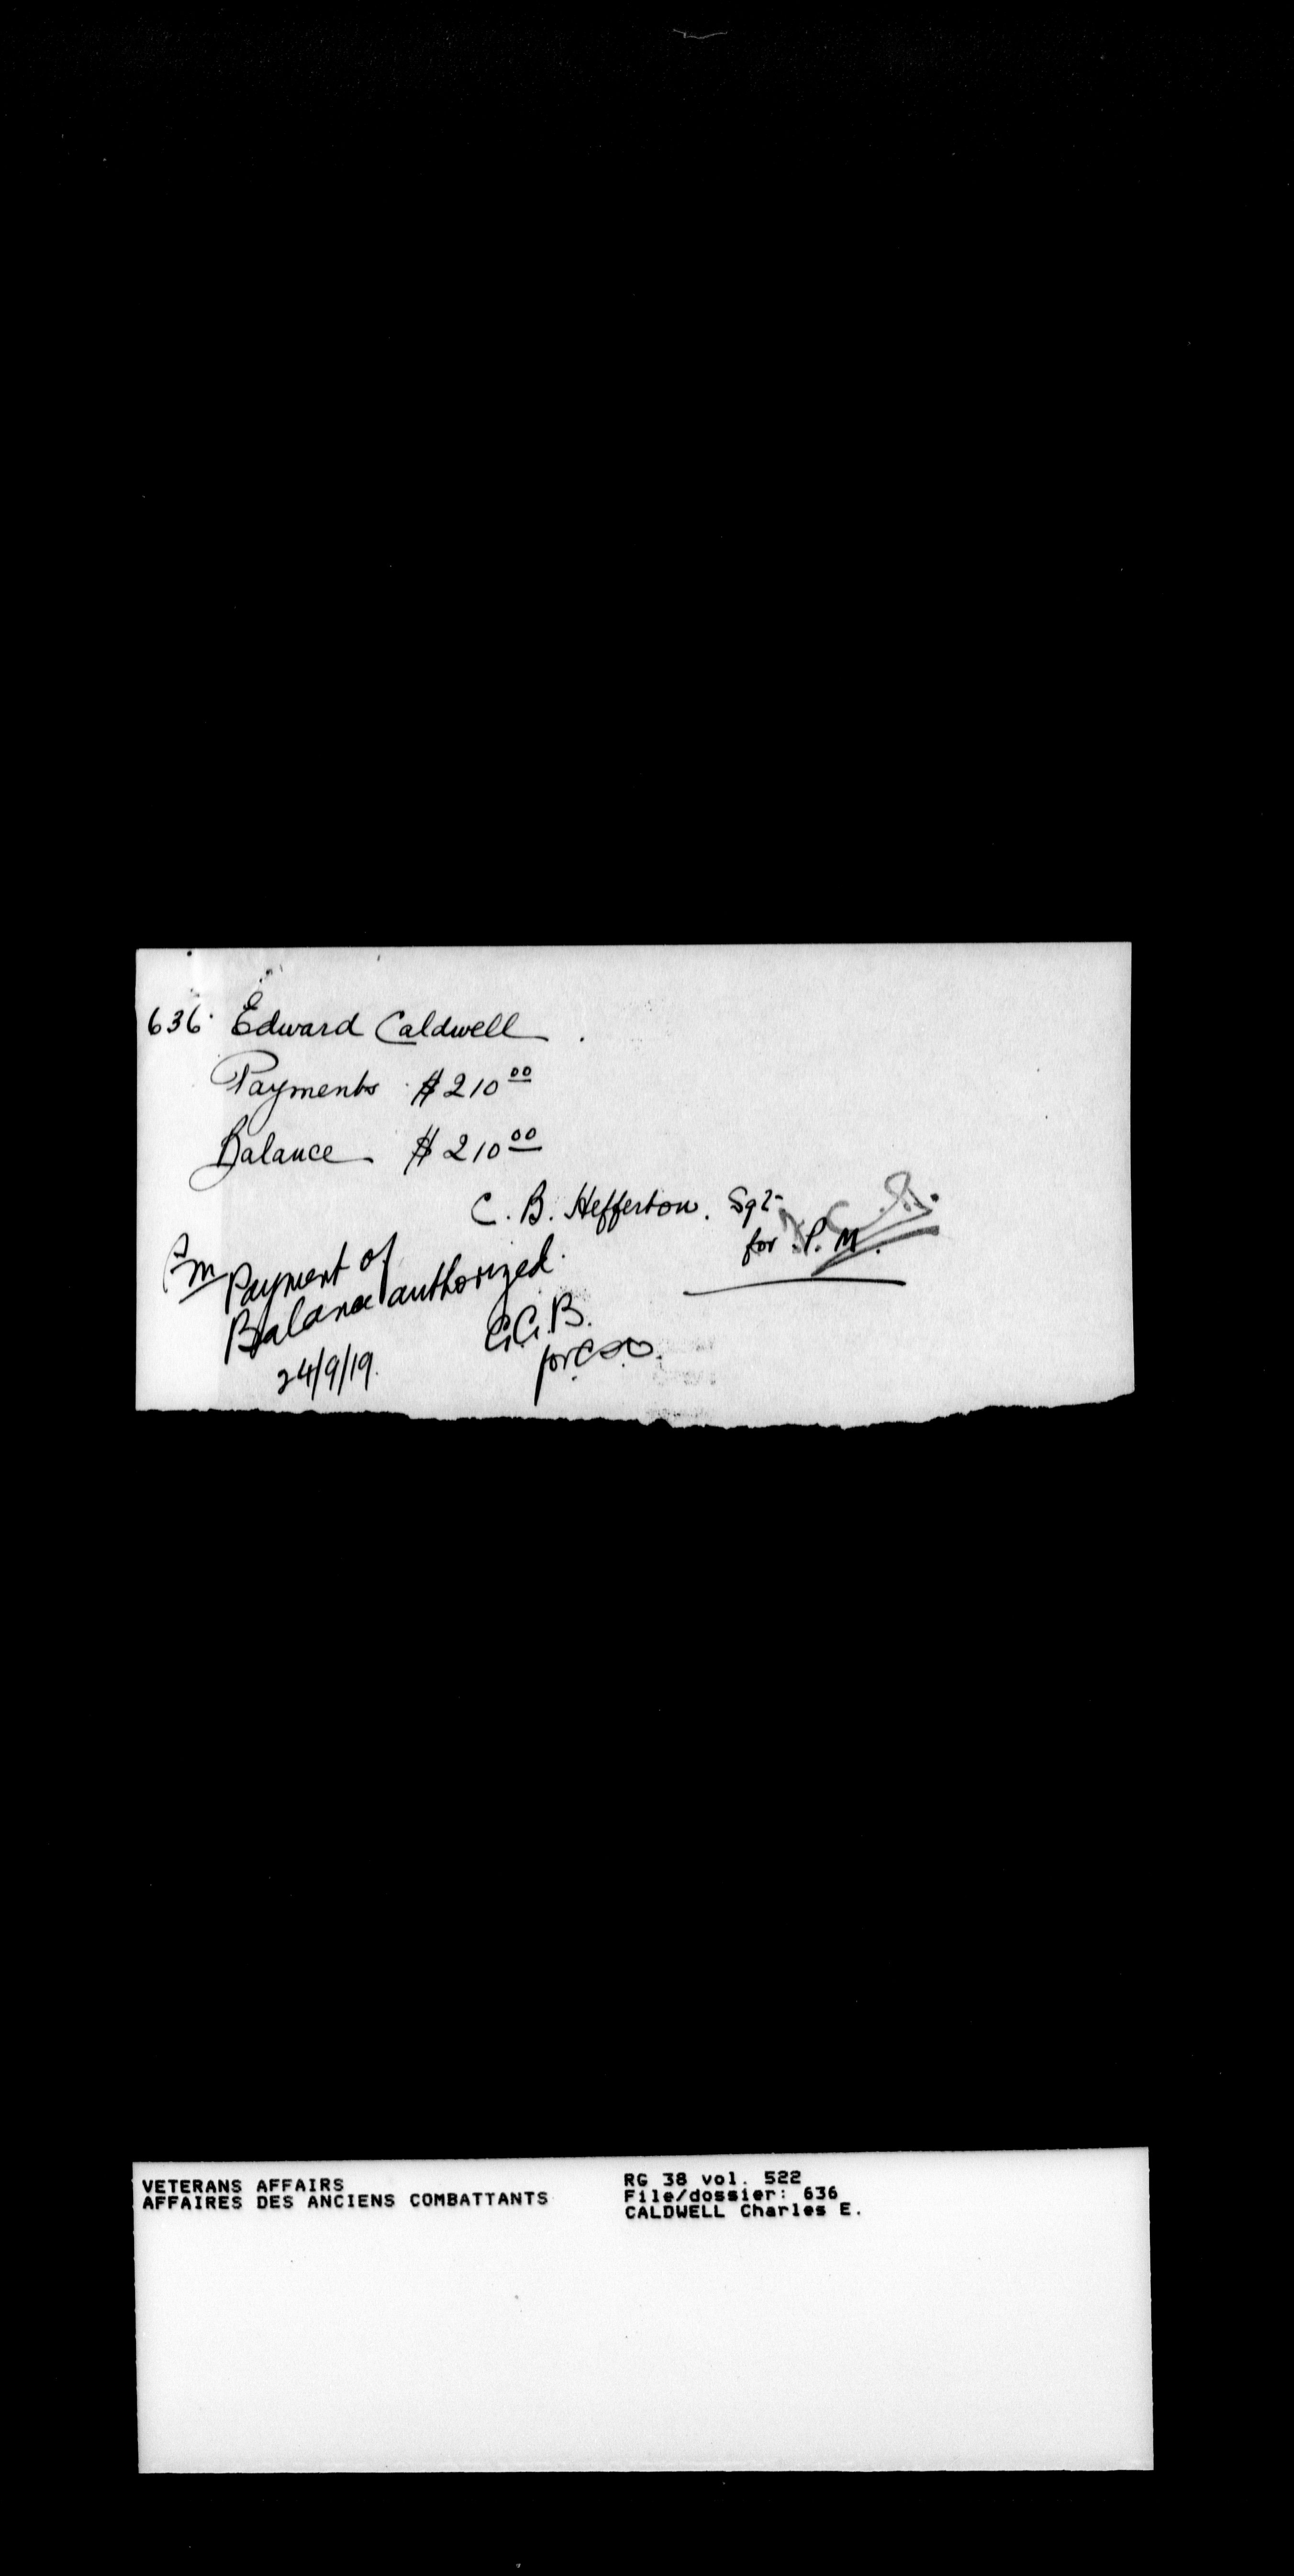 636. Edward Caldwell.
Payments $210.00
Balance $210.00
C. B. Hefferton. Sgt
for P. M.
Pm Payment of
Balance authorized.
24/9/19.
C.C.B.
for C.S.O.
VETERANS AFFAIRS
AFFAIRES DES ANCIENS COMBATTANTS
RG 38 vol. 522
File/dossier: 636
CALDWELL Charles E.